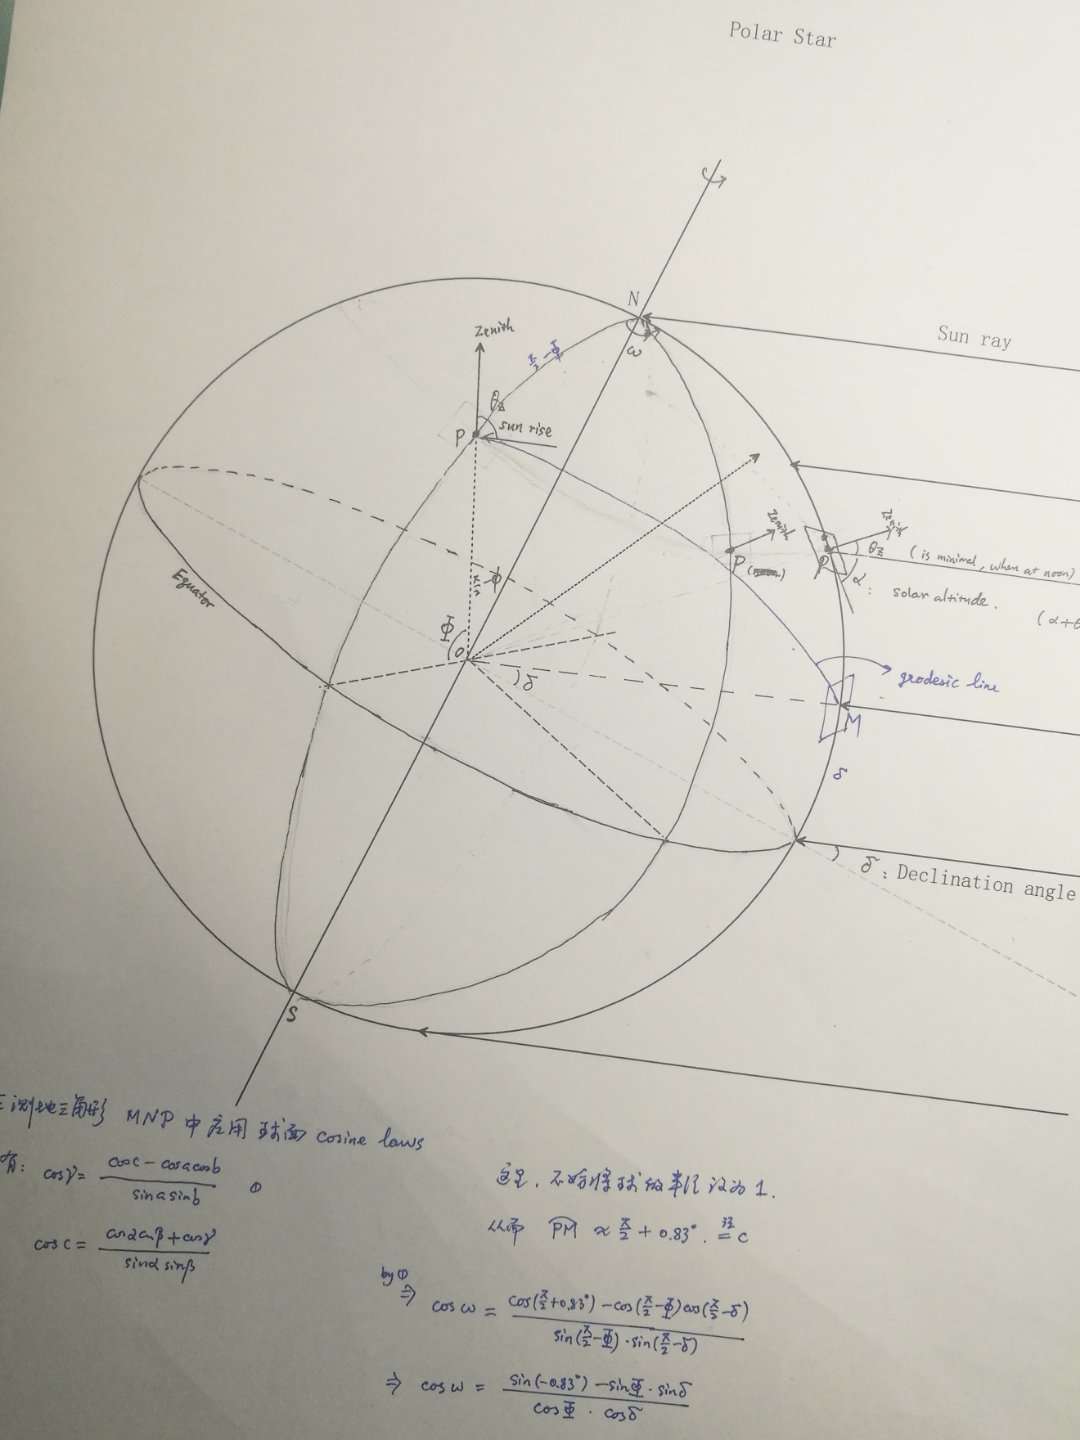 Polar Star
N
Sun ray
Zenith
π/2 - Φ
ω
θz
P
sun rise
Zenith
P
Zenith
θz
(is minimal, when at noon)
P
α:
solar altitude.
(α+θ
Equator
Φ
Φ
O
δ
geodesic line
M
δ
δ : Declination angle
S
测地三角形 MNP 中应用球面 cosine laws
有: cosγ = (cosc - cosacosb)/(sinasinb) ①
cosc = (cosαcosβ + cosγ)/(sinα sinβ)
这里, 不妨将球的半径设为1.
从而 PM ≈ π/2 + 0.83°. 记= c
by ①
⇒ cosω = (cos(π/2+0.83°) - cos(π/2-Φ)cos(π/2-δ))/(sin(π/2-Φ)·sin(π/2-δ))
⇒ cosω = (sin(-0.83°) - sinΦ·sinδ)/(cosΦ · cosδ)